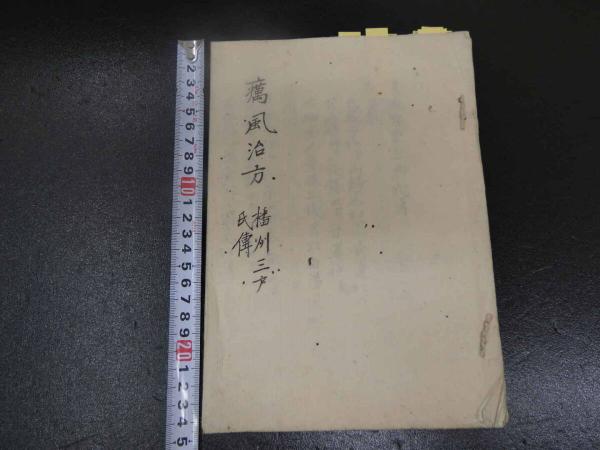 癘風治方
播州三宅
氏傳
1 2 3 4 5 6 7 8 9 10 1 2 3 4 5 6 7 8 9 20 1 2 3 4 5